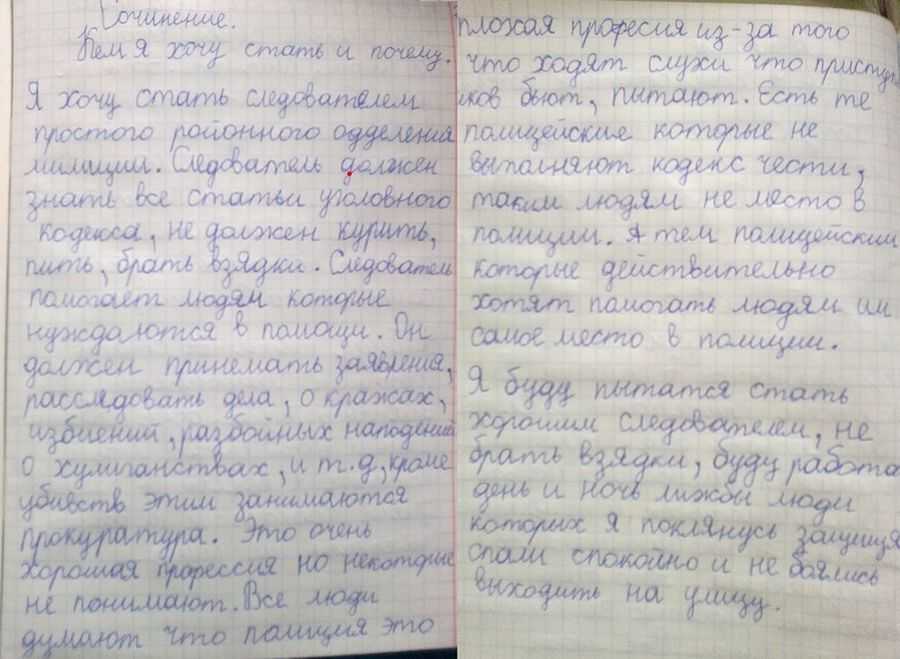 Сочинение.
Кем я хочу стать и почему.
Я хочу стать следователем
простого районного одделения
милиции. Следователь должен
знать все статьи уголовного
кодекса, не должен курить,
пить, брать взядки. Следователь
помогает людям которые
нуждаются в помощи. Он
должен принемать заявления,
расследовать дела, о кражах,
избиений, разбойных нападений
о хулиганствах, и т.д, кроме
убивств этим занимаются
прокуратура. Это очень
хорошая профессия но некоторые
не понимают. Все люди
думают что полиция это
плохая професия из-за того
что ходят слухи что приступ
иков бьют, пытают. Есть те
полицейские которые не
выполняют кодекс чести,
таким людям не место в
полиции. А тем полицейским
которые действительно
хотят помогать людям им
самое место в полиции.
Я буду пытатся стать
хорошим следователем, не
брать взядки, буду работа
день и ночь лижбы люди
которых я поклянусь защищя
спали спокойно и не боялись
выходить на улицу.